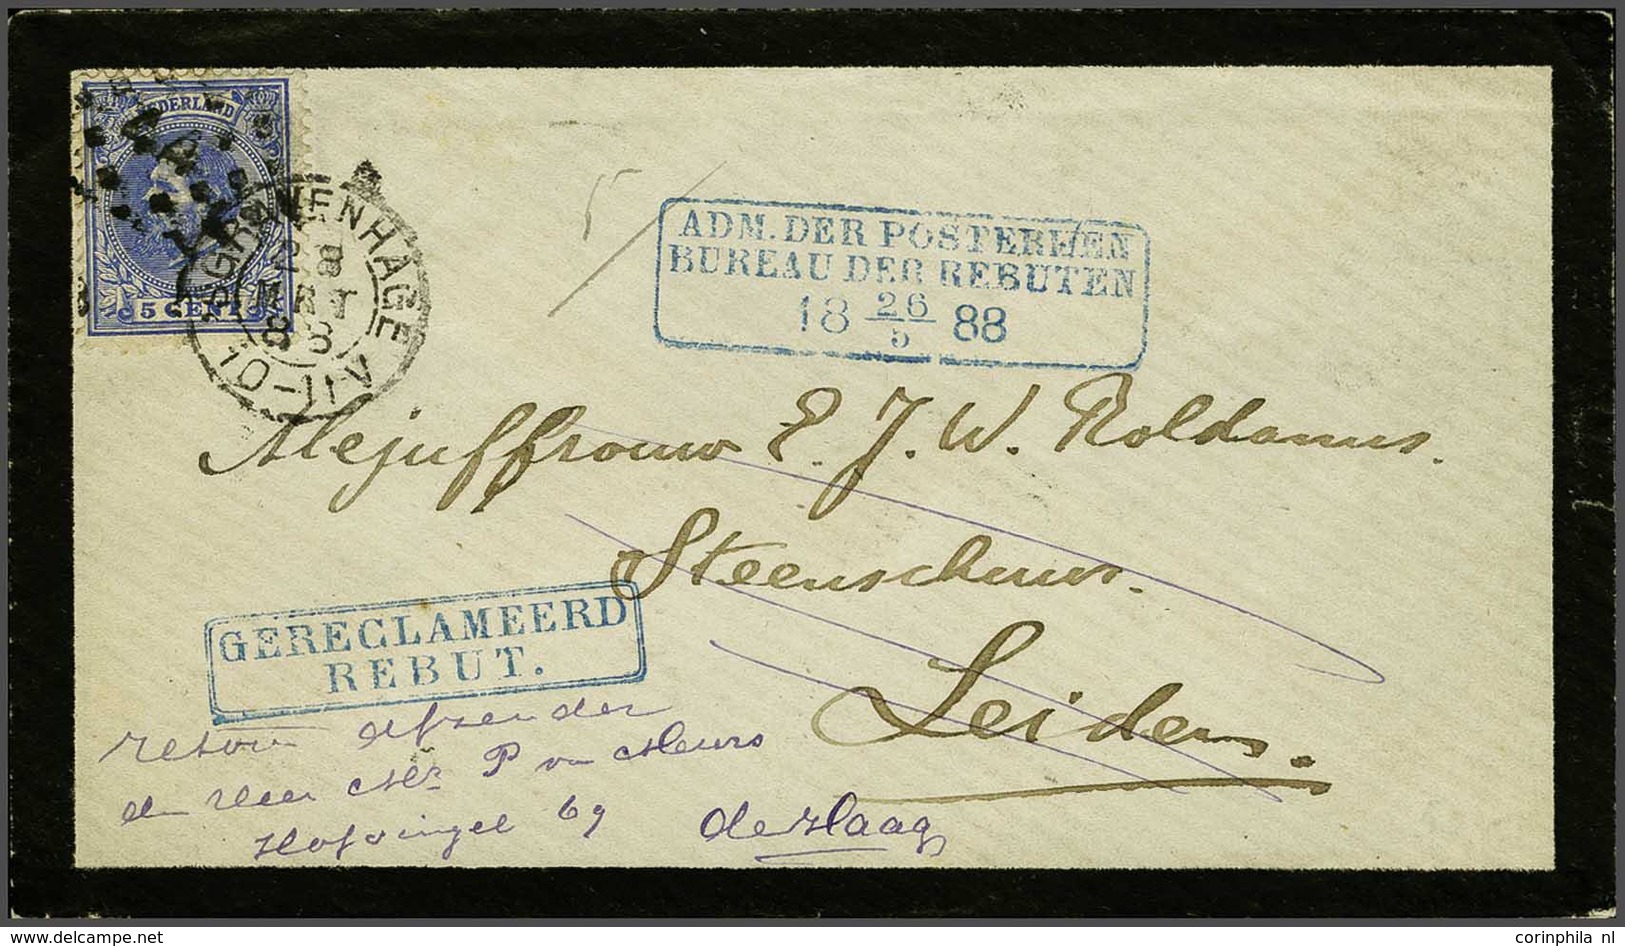 NEDERLAND
5 CENT
'S GRAVENHAGE
28
MRT
88
10-11V
5
ADM. DER POSTERIJEN
BUREAU DER REBUTEN
18 26/5 88
Mejuffrouw E. J. W. Roldanus.
Steenschuur.
Leiden.
GERECLAMEERD
REBUT.
retour afzender
den Heer Mr P van Meurs
Hofsingel 69 den Haag
corinphila nl